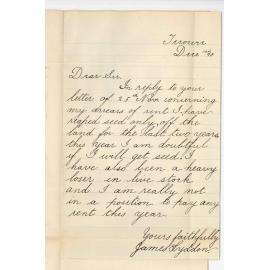 Dec
Dear Sir,
In reply to your
letter of 25th Nov. concerning
my arrears of rent I have
reaped seed only off the
land for the last two years
this year I am doubtful
if I will get seed. I
have also been a heavy
loser in live stock
and I am really not
in a position to pay any
rent this year.
Yours faithfully
James Lyddon.